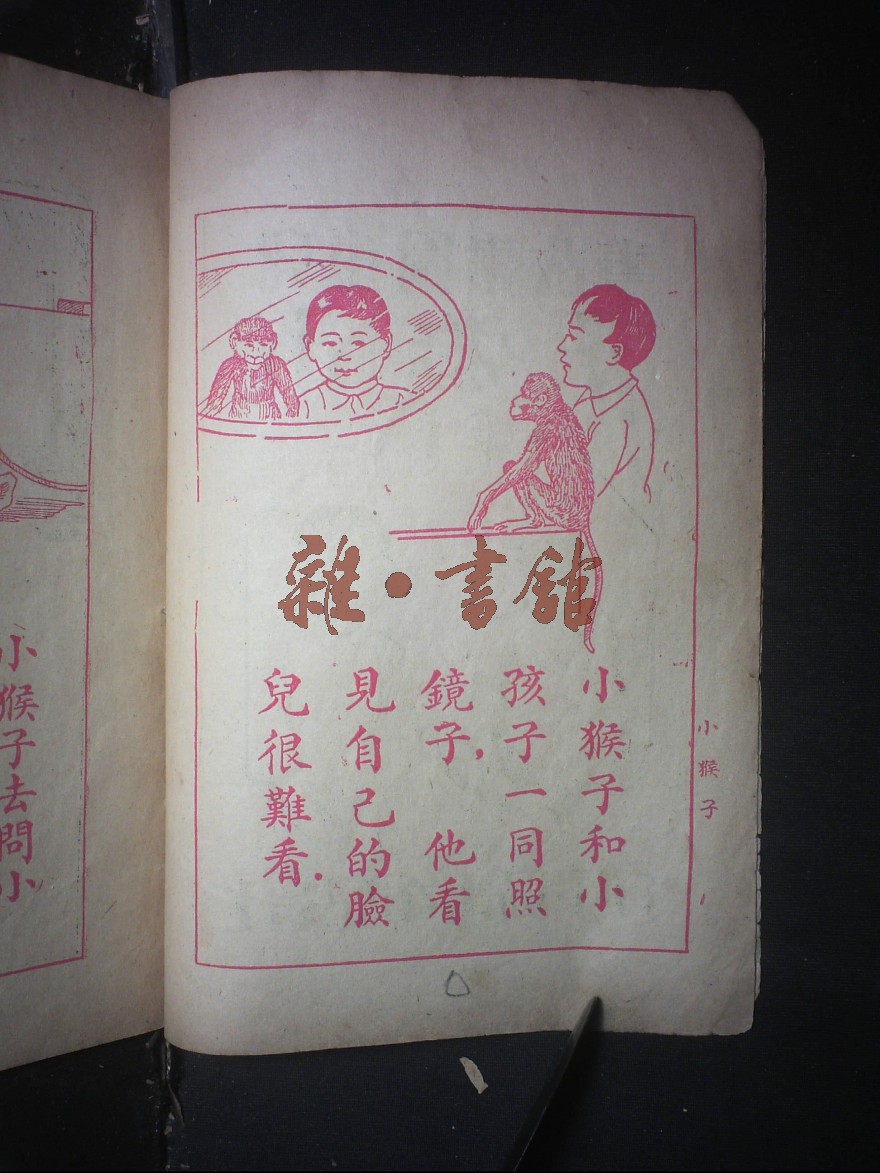 小猴子和小
孩子一同照
鏡子，他看
見自己的臉
兒很難看．
小猴子
小猴子去問小
雜•書館